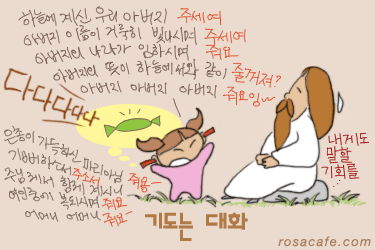 하늘에 계신 우리 아버지 주세여
아버지 이름이 거룩히 빛나시며 주세여
아버지의 나라가 임하시며 줘요
아버지의 뜻이 하늘에서와 같이 줄꺼져?
아버지 아버지 아버지 줘요잉~
다다다다다
은총이 가득하신 마리아님
기뻐하소서 주소서 줘용~
주님께서 함께 계시니
여인중에 복되시며 줘요
어머니 어머니 줘요~
내게도
말할
기회를...
기도는 대화
rosacafe.com